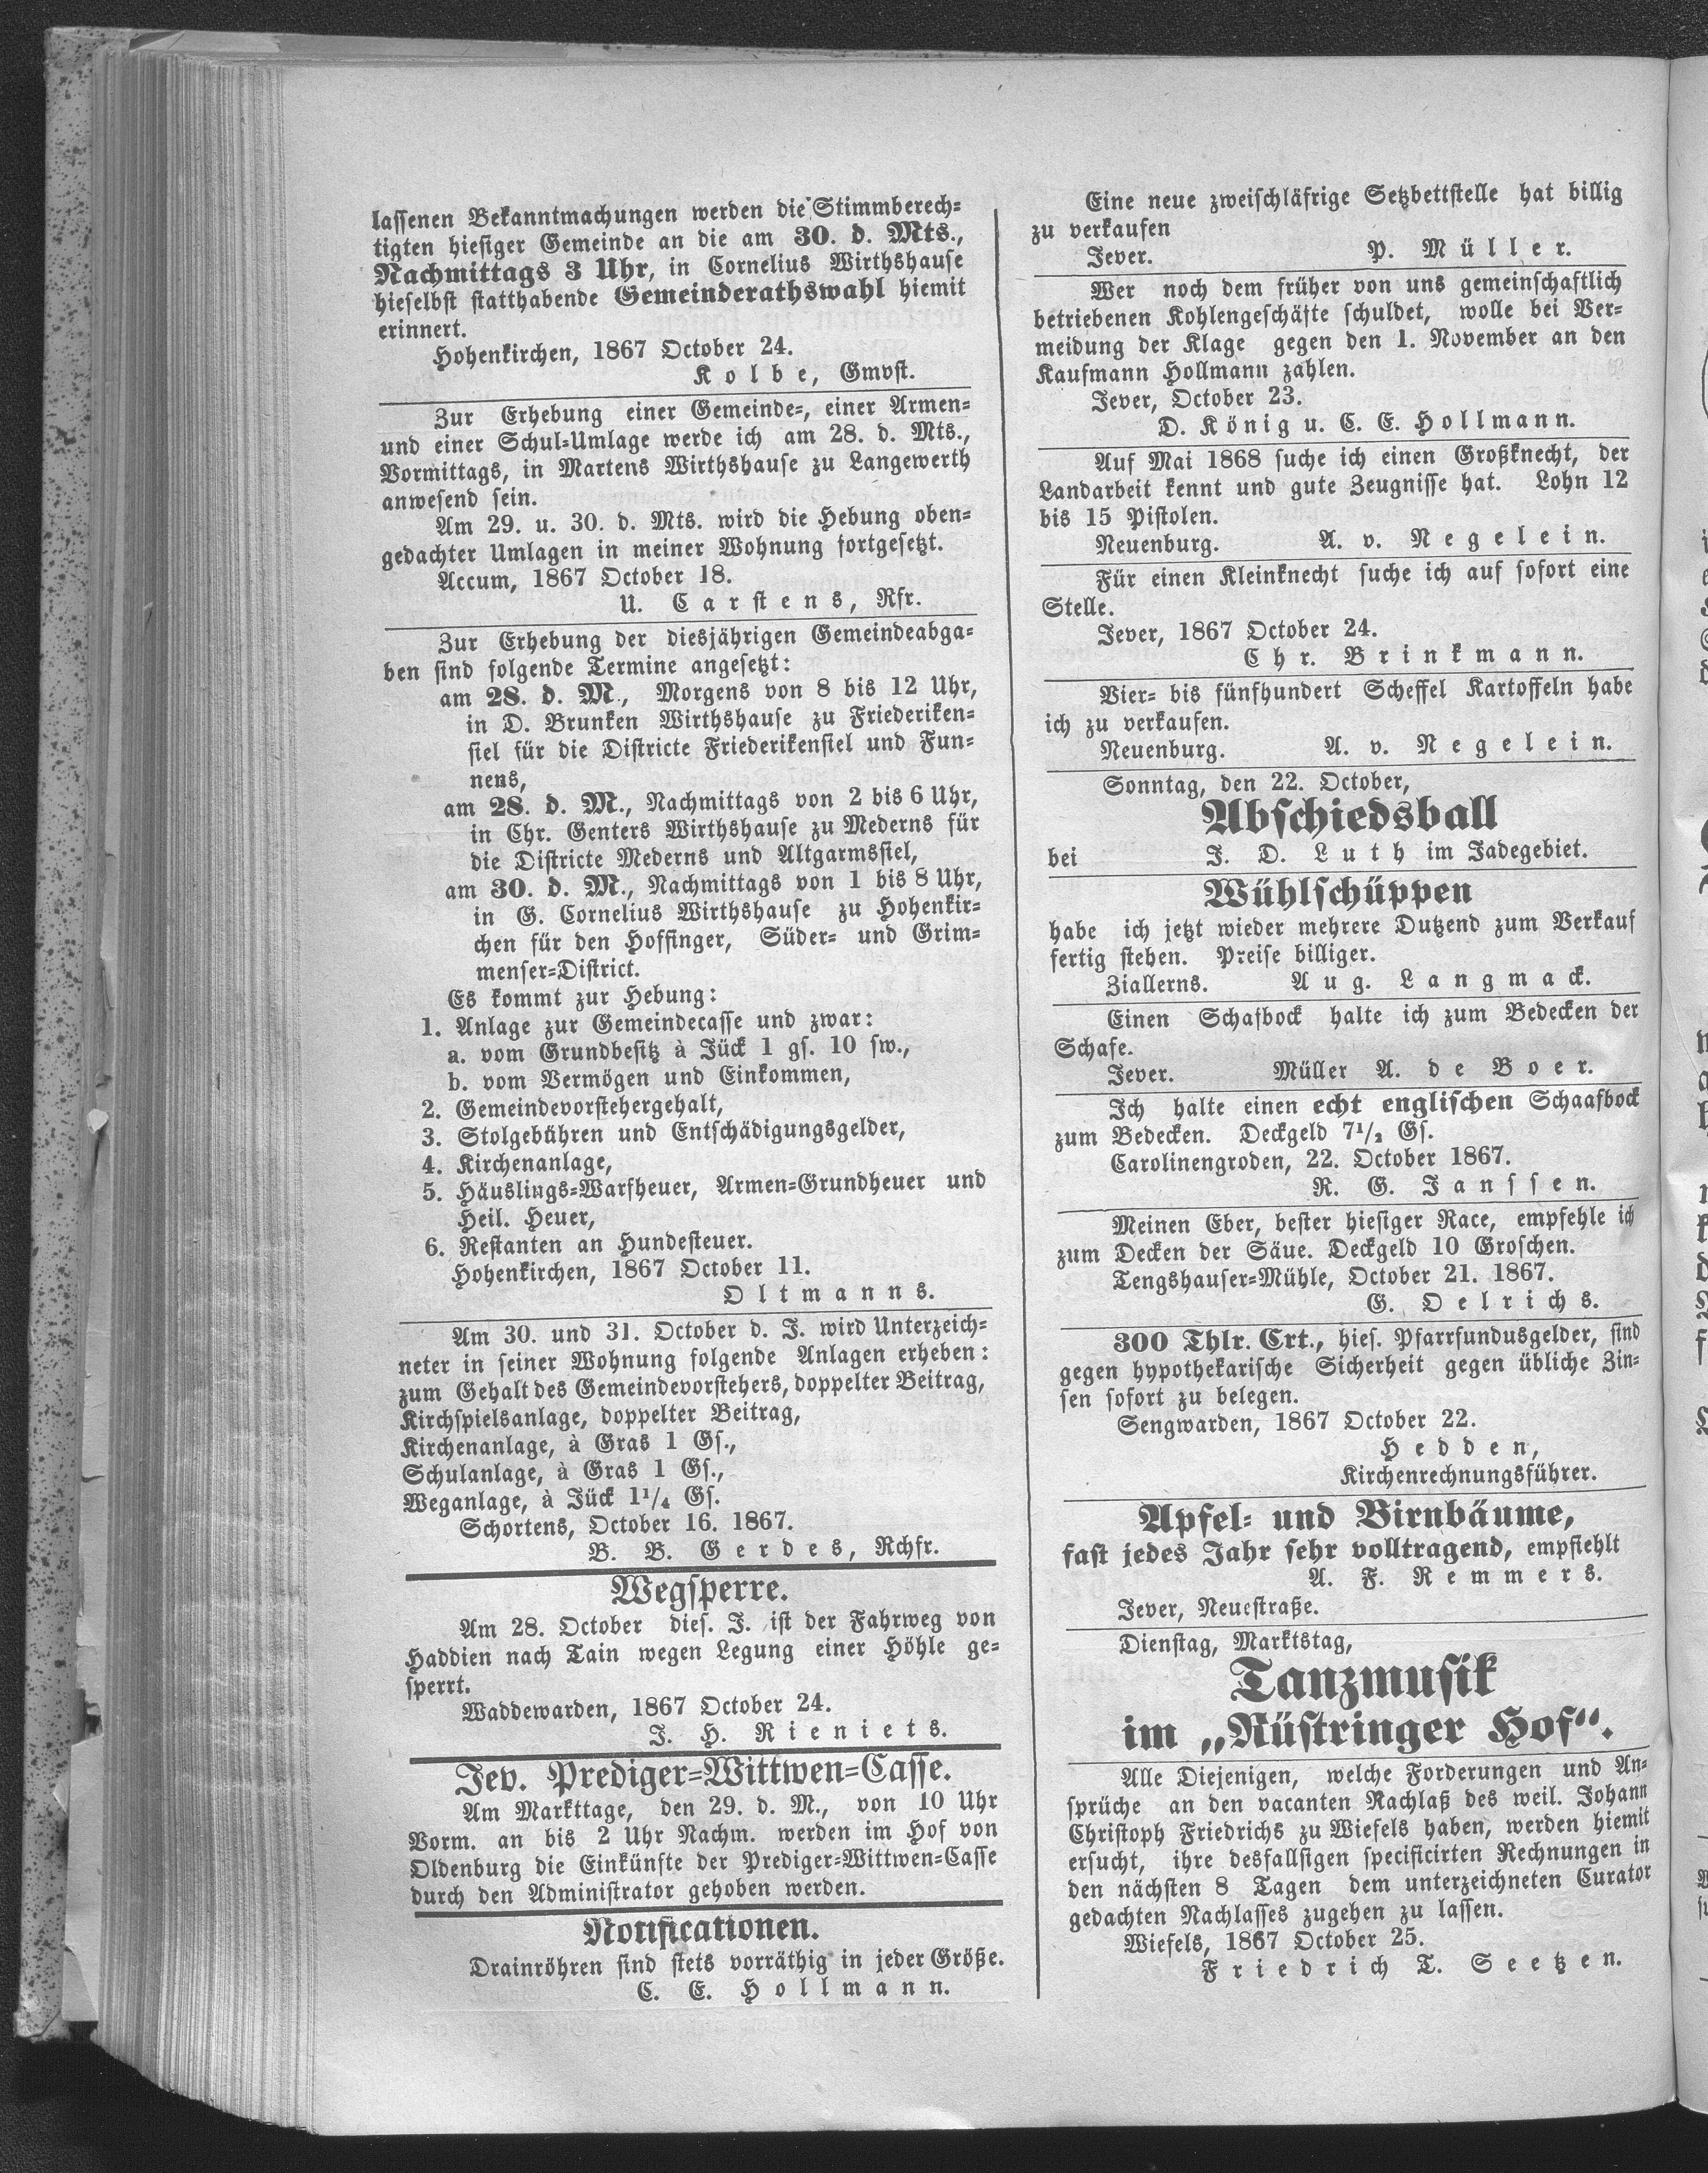 lassenen Bekanntmachungen werden die Stimmberech-
tigten hiesiger Gemeinde an die am 30. d. Mts.,
Nachmittags 3 Uhr, in Cornelius Wirthshause
hieselbst statthabende Gemeinderathswahl hiemit
erinnert.
Hohenkirchen, 1867 October 24.
Kolbe, Gmvst.
Zur Erhebung einer Gemeinde-, einer Armen-
und einer Schul-Umlage werde ich am 28. d. Mts.,
Vormittags, in Martens Wirthshause zu Langewerth
anwesend sein.
Am 29. u. 30. d. Mts. wird die Hebung oben-
gedachter Umlagen in meiner Wohnung fortgesetzt.
Accum, 1867 October 18.
U. Carstens, Rfr.
Zur Erhebung der diesjährigen Gemeindeabga-
ben sind folgende Termine angesetzt:
am 28. d. M., Morgens von 8 bis 12 Uhr,
in D. Brunken Wirthshause zu Friederiken-
siel für die Districte Friederikensiel und Fun-
nens,
am 28. d. M., Nachmittags von 2 bis 6 Uhr,
in Chr. Genters Wirthshause zu Mederns für
die Districte Mederns und Altgarmssiel,
am 30. d. M., Nachmittags von 1 bis 8 Uhr,
in G. Cornelius Wirthshause zu Hohenkir-
chen für den Hoffinger, Süder- und Grim-
menser-District.
Es kommt zur Hebung:
1. Anlage zur Gemeindecasse und zwar:
a. vom Grundbesitz à Jück 1 gs. 10 sw.,
b. vom Vermögen und Einkommen,
2. Gemeindevorstehergehalt,
3. Stolgebühren und Entschädigungsgelder,
4. Kirchenanlage,
5. Häuslings-Warfheuer, Armen-Grundheuer und
Heil. Heuer,
6. Restanten an Hundesteuer.
Hohenkirchen, 1867 October 11.
Oltmanns.
Am 30. und 31. October d. J. wird Unterzeich-
neter in seiner Wohnung folgende Anlagen erheben:
zum Gehalt des Gemeindevorstehers, doppelter Beitrag,
Kirchspielsanlage, doppelter Beitrag,
Kirchenanlage, à Gras 1 Gs.,
Schulanlage, à Gras 1 Gs.,
Weganlage, à Jück 1¹/₄ Gs.
Schortens, October 16. 1867.
B. B. Gerdes, Rchfr.
Wegsperre.
Am 28. October dies. J. ist der Fahrweg von
Haddien nach Tain wegen Legung einer Höhle ge-
sperrt.
Waddewarden, 1867 October 24.
J. H. Rieniets.
Jev. Prediger-Wittwen-Casse.
Am Markttage, den 29. d. M., von 10 Uhr
Vorm. an bis 2 Uhr Nachm. werden im Hof von
Oldenburg die Einkünfte der Prediger-Wittwen-Casse
durch den Administrator gehoben werden.
Notificationen.
Drainröhren sind stets vorräthig in jeder Größe.
C. E. Hollmann.
Eine neue zweischläfrige Setzbettstelle hat billig
zu verkaufen
Jever. P. Müller.
Wer noch dem früher von uns gemeinschaftlich
betriebenen Kohlengeschäfte schuldet, wolle bei Ver-
meidung der Klage gegen den 1. November an den
Kaufmann Hollmann zahlen.
Jever, October 23.
D. König u. C. E. Hollmann.
Auf Mai 1868 suche ich einen Großknecht, der
Landarbeit kennt und gute Zeugnisse hat. Lohn 12
bis 15 Pistolen.
Neuenburg. A. v. Negelein.
Für einen Kleinknecht suche ich auf sofort eine
Stelle.
Jever, 1867 October 24.
Chr. Brinkmann.
Vier- bis fünfhundert Scheffel Kartoffeln habe
ich zu verkaufen.
Neuenburg. A. v. Negelein.
Sonntag, den 22. October,
Abschiedsball
bei J. D. Luth im Jadegebiet.
Wühlschüppen
habe ich jetzt wieder mehrere Dutzend zum Verkauf
fertig stehen. Preise billiger.
Ziallerns. Aug. Langmack.
Einen Schafbock halte ich zum Bedecken der
Schafe.
Jever. Müller A. de Boer.
Ich halte einen echt englischen Schaafbock
zum Bedecken. Deckgeld 7¹/₂ Gs.
Carolinengroden, 22. October 1867.
R. G. Janssen.
Meinen Eber, bester hiesiger Race, empfehle ich
zum Decken der Säue. Deckgeld 10 Groschen.
Tengshauser-Mühle, October 21. 1867.
G. Oelrichs.
300 Thlr. Crt., hies. Pfarrfundusgelder, sind
gegen hypothekarische Sicherheit gegen übliche Zin-
sen sofort zu belegen.
Sengwarden, 1867 October 22.
Hedden,
Kirchenrechnungsführer.
Apfel- und Birnbäume,
fast jedes Jahr sehr volltragend, empfiehlt
A. F. Remmers.
Jever, Neuestraße.
Dienstag, Marktstag,
Tanzmusik
im „Rüstringer Hof“.
Alle Diejenigen, welche Forderungen und An-
sprüche an den vacanten Nachlaß des weil. Johann
Christoph Friedrichs zu Wiefels haben, werden hiemit
ersucht, ihre desfallsigen specificirten Rechnungen in
den nächsten 8 Tagen dem unterzeichneten Curator
gedachten Nachlasses zugehen zu lassen.
Wiefels, 1867 October 25.
Friedrich T. Seetzen.